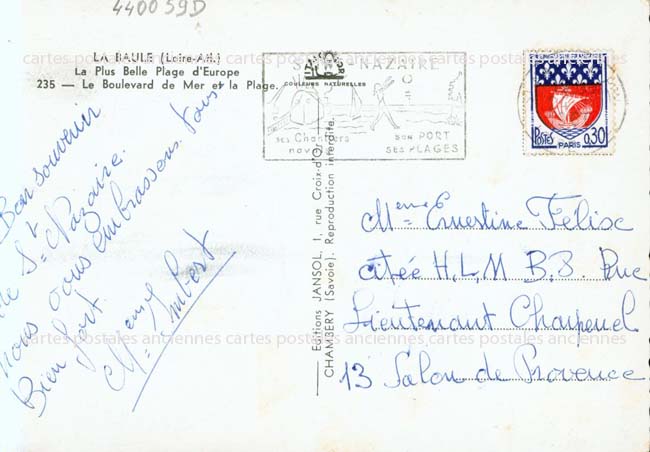 440059D
LA BAULE (Loire-Atl.)
La Plus Belle Plage d'Europe
235 — Le Boulevard de Mer et la Plage.
COULEURS NATURELLES
ST-NAZAIRE
SES Chantiers
navals
SON PORT
SES PLAGES
POSTES
0,30
PARIS
cartes postales anciennes cartes postales anciennes cartes postales anciennes
Bon souvenir
de St Nazaire.
nous vous embrassons tous
Bien fort.
Meme Imbert
Editions JANSOL, 1, rue Croix-d'Or
CHAMBERY (Savoie). Reproduction interdite.
Meme Ernestine Felix
citée H.L.M B.B. Rue
Lieutenant Charpenel
13 Salon de Provence
cartes postales anciennes cartes postales anciennes cartes postales anciennes